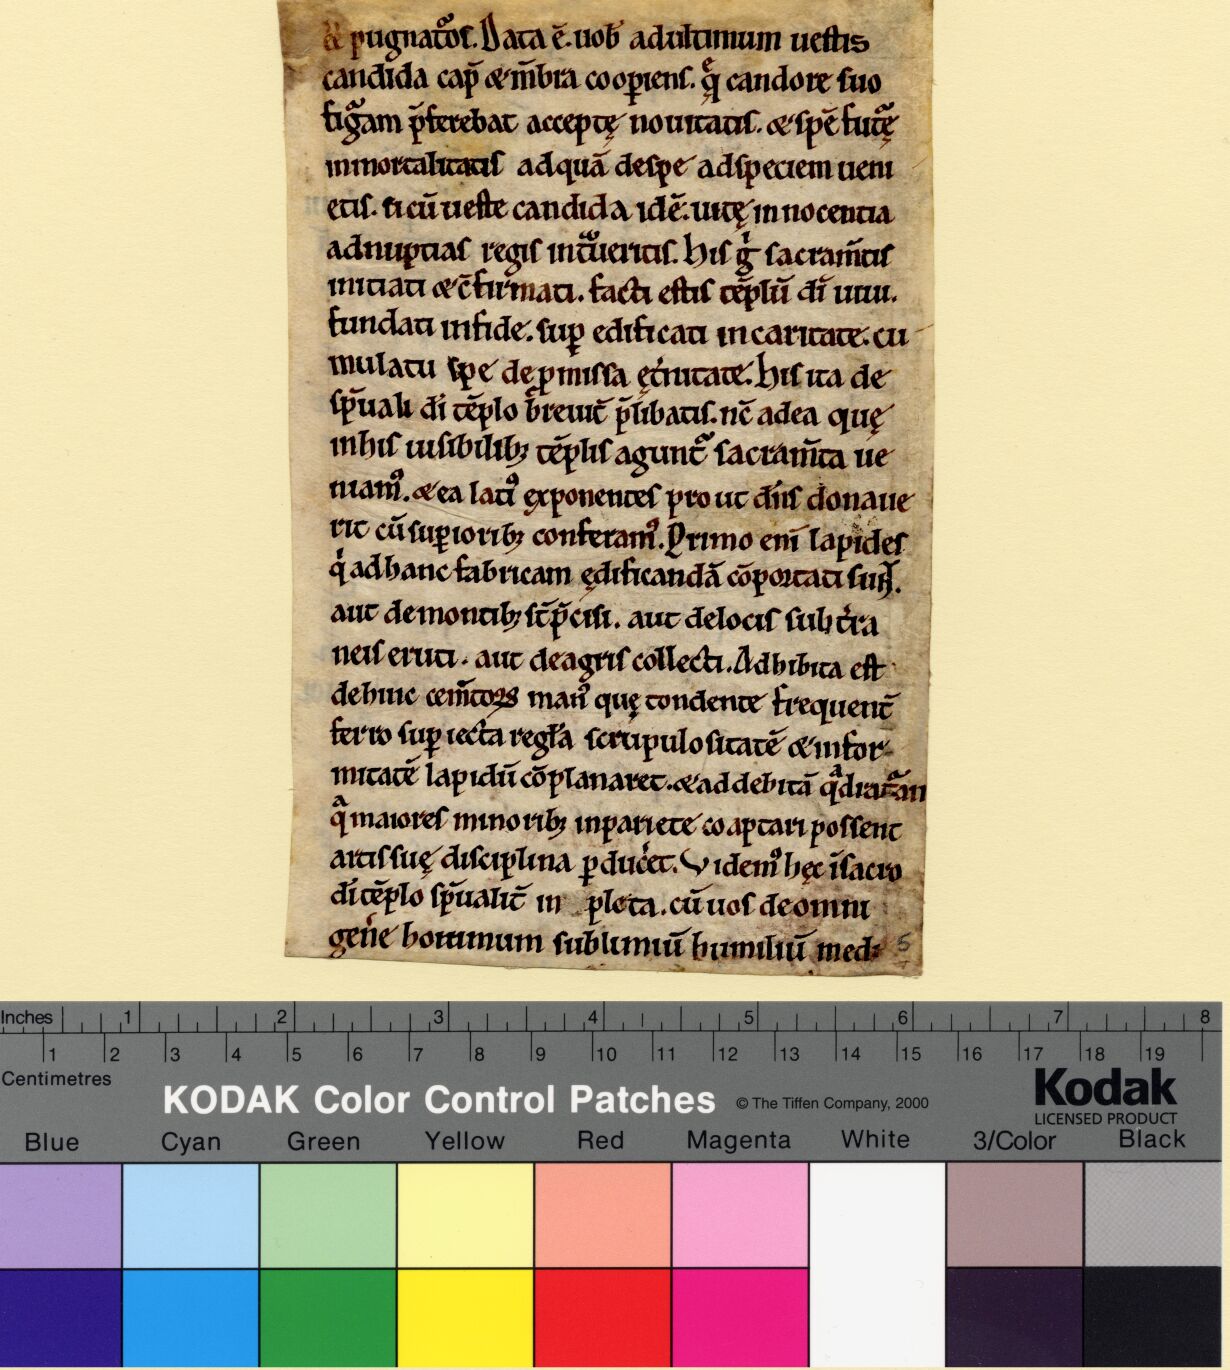 & pugnatoꝛ. Data ē. uob̄ adultimum uestis
candida cap̄ & m̄bra coopiens. q̄ candore suo
figᷓam p̄ferebat acceptę nouitatis. & spē futᷓę
inmortalitatis adquā despe adspeciem ueni
etis. si cū ueste candida idē. uitę innocentia
adnuptias regis int̄ueritis. his gͥ sacram̄tis
initiati & c̄firmati. facti estis tēplū di̅ uiui.
fundati infide. suꝑ edificati incaritate. cu
mulatu spe de ꝓmissa ęt̄nitate. his ita de
sp̄uali di̅ tēplo breuit̄ p̄libatis. nc̄ adea quę
inhis uisibilibꝫ tēplis agunt᷑ sacram̄ta ue
niam᷒. & ea lati᷒ exponentes prout dn̅s donaue
rit cū suꝑioribꝫ conferam᷒. Primo eni̅ lapides
qͥ adhanc fabricam ędificandā cōportati sun̄t.
aut demontibꝫ st̄ p̄cisi. aut delocis subt̄ra
neis eruti. aut deagris collecti. Adhibita est
dehinc cem̄toꝝ man᷒ quę tondente frequent̄
ferro suꝑ iecta regl̄a scrupulositatē & infor
mitatē lapidū cōplanaret. & ad debitā qᷓdratᷓam
qᷓ maiores minoribꝫ inpariete coaptari possent
artis suę disciplina ꝑducet. Videm᷒ hęc ī sacro
di̅ tēplo sp̄ualit̄ in pleta. cū uos deomni
gen̄e hominum sublimiū humiliū medi
5
Inches 1 2 3 4 5 6 7 8
1 2 3 4 5 6 7 8 9 10 11 12 13 14 15 16 17 18 19
Centimetres
KODAK Color Control Patches © The Tiffen Company, 2000 Kodak
LICENSED PRODUCT
Blue Cyan Green Yellow Red Magenta White 3/Color Black